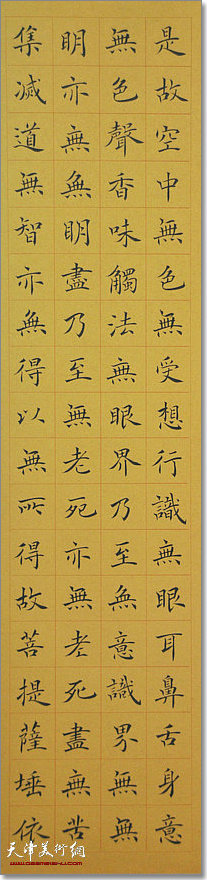 是故空中無色無受想行識無眼耳鼻舌身意
無色聲香味觸法無眼界乃至無意識界無無
明亦無無明盡乃至無老死亦無老死盡無苦
集滅道無智亦無得以無所得故菩提薩埵依
天津美術網